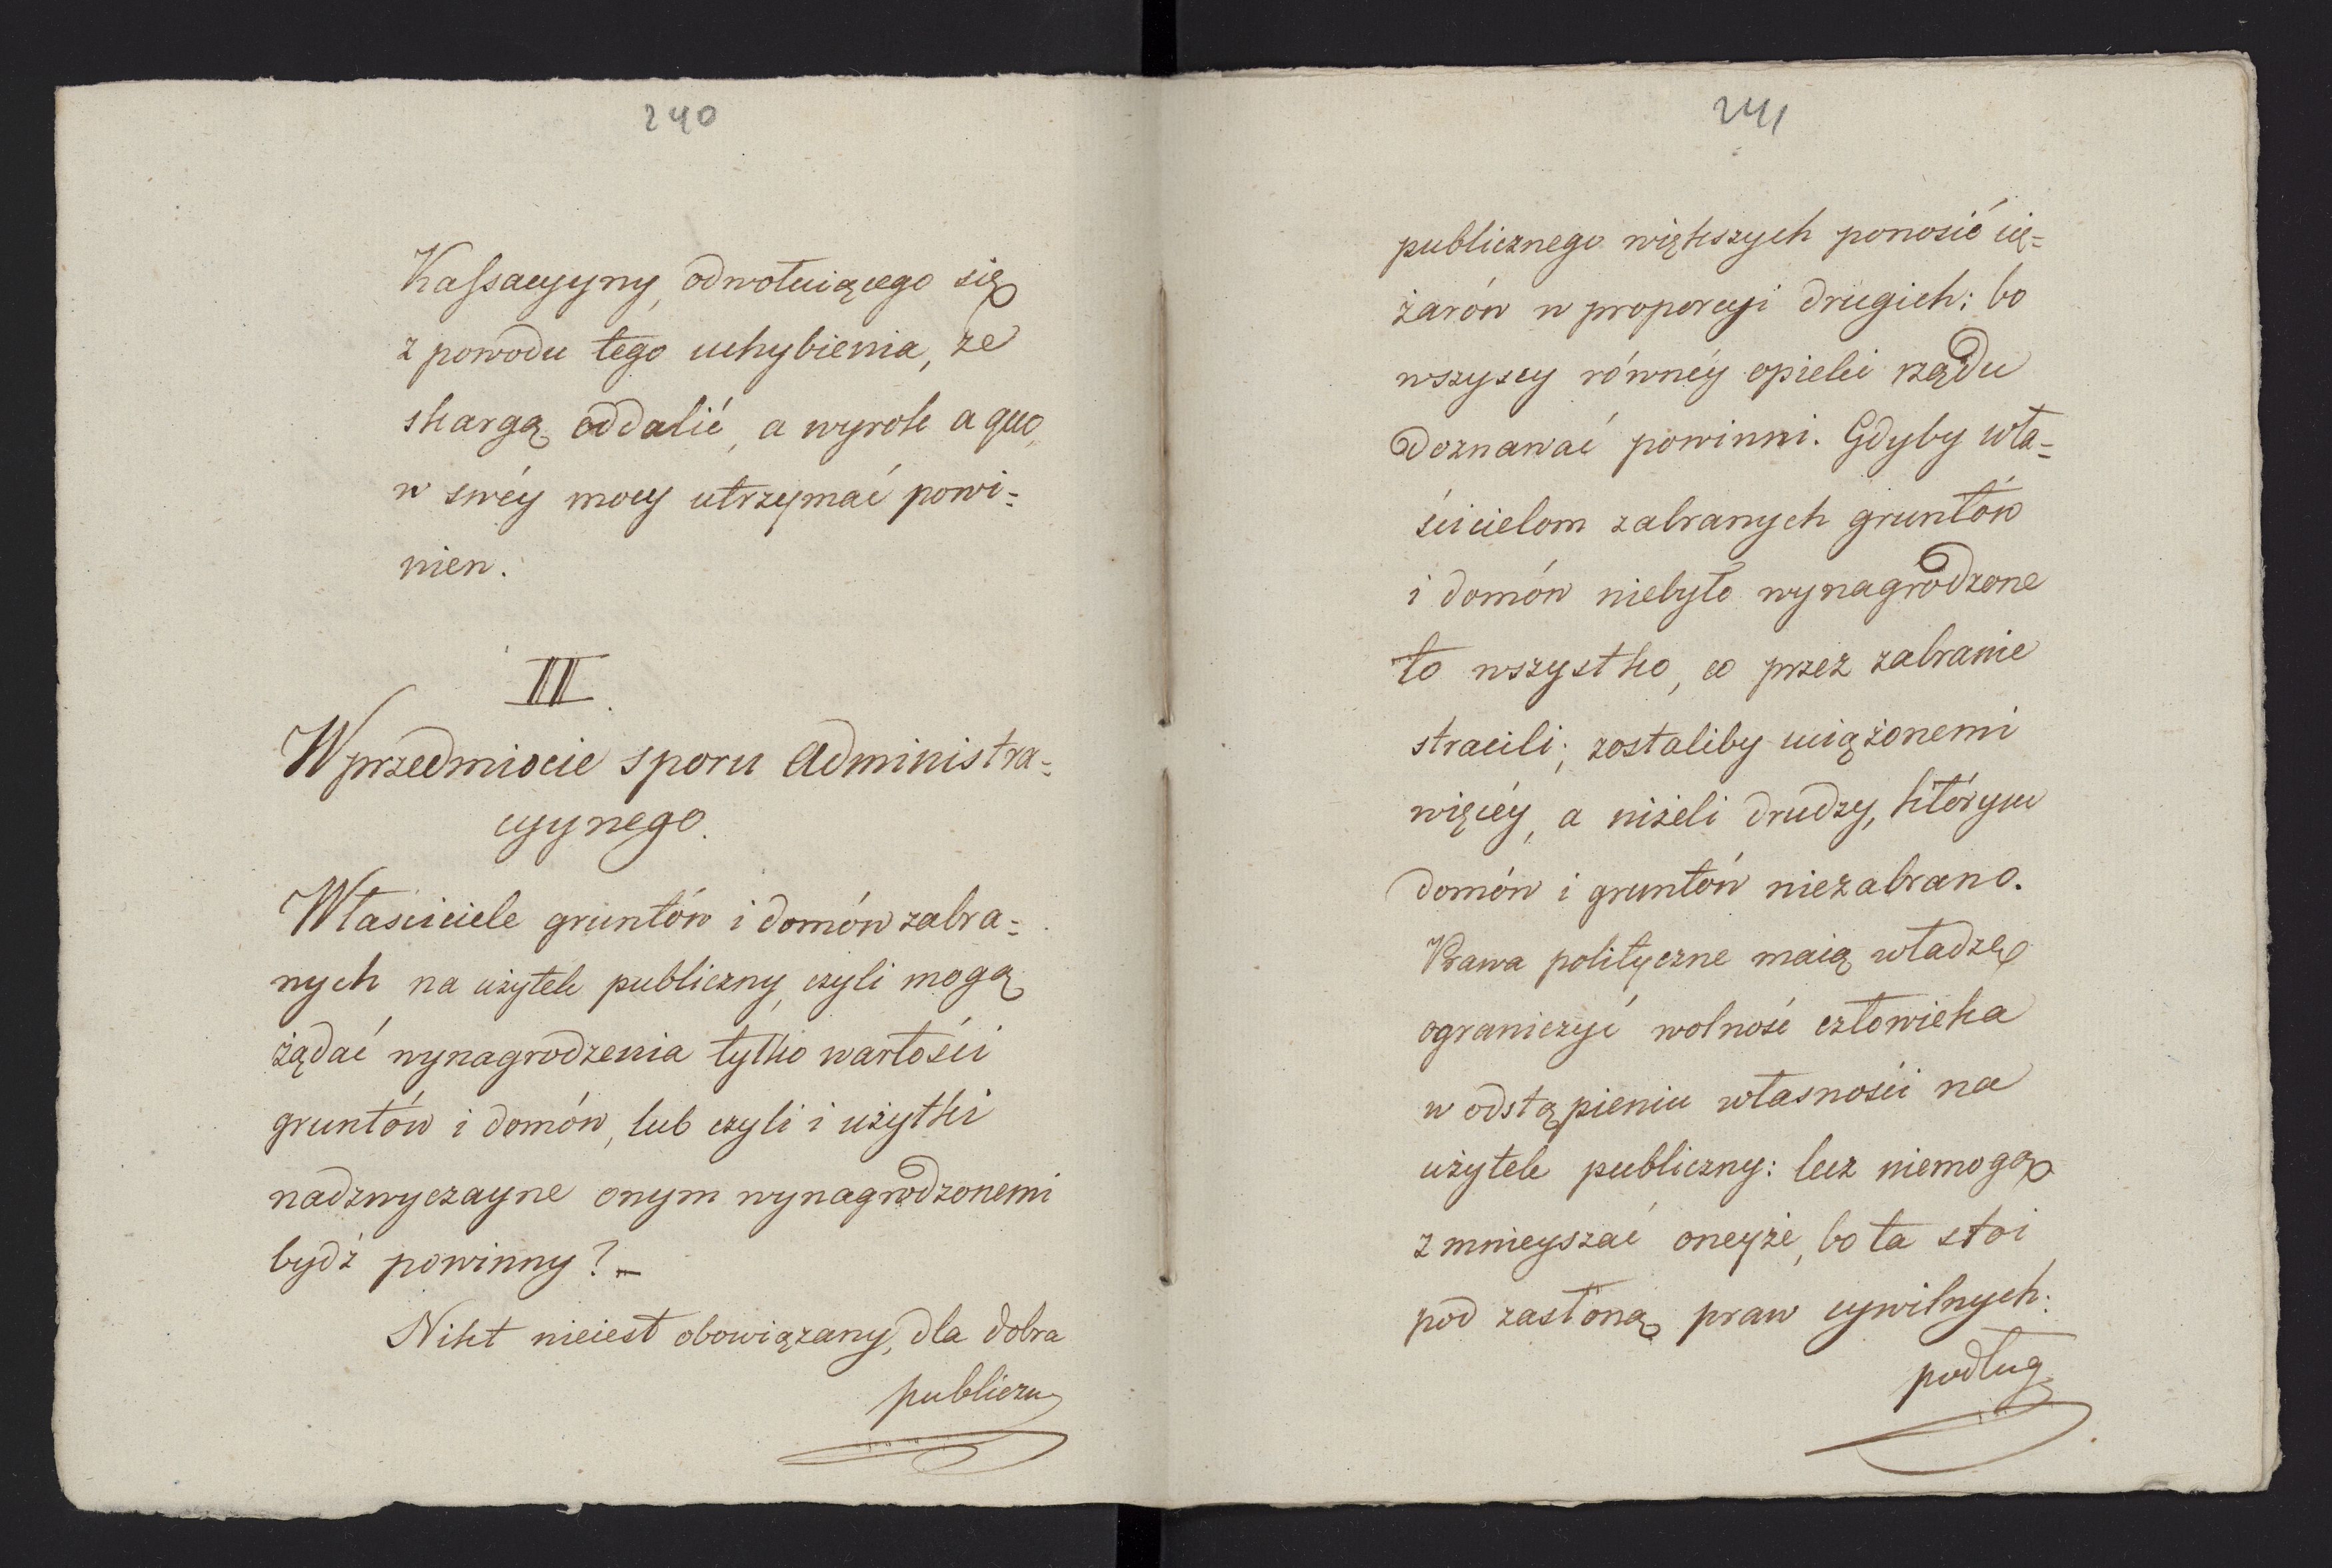 240
Kassacyyny, odwołuiącego się
z powodu tego uchybienia, ze
skargą oddalić, a wyrok a quo,
w swéy mocy utrzymać powi=
nien.
II.
W przedmiocie sporu Administra=
cyynego.
Własciciele gruntów i domów zabra=
nych na użytek publiczny, czyli mogą
żądać wynagrodzenia tylko wartości
gruntów i domów, lub czyli i użytki
nadzwyczayne onym wynagrodzonemi
bydź powinny? –
Nikt nieiest obowiązany, dla dobra
publiczn
241
publicznego większych ponosić cię=
żarów w proporcyi drugich: bo
wszyscy równéy opieki rządu
doznawać powinni. Gdyby wła=
ścicielom zabranych gruntów
i domów niebyło wynagrodzone
to wszystko, co przez zabranie
stracili; zostaliby uciążonemi
więcéy, a niżeli drudzy, którym
domów i gruntów niezabrano.
Prawa polityczne maią władzę
ograniczyć wolność człowieka
w odstąpieniu własności na
użytek publiczny: lecz niemogą
zmnieyszać oneyże, bo ta stoi
pod zasłoną praw cywilnych:
podług